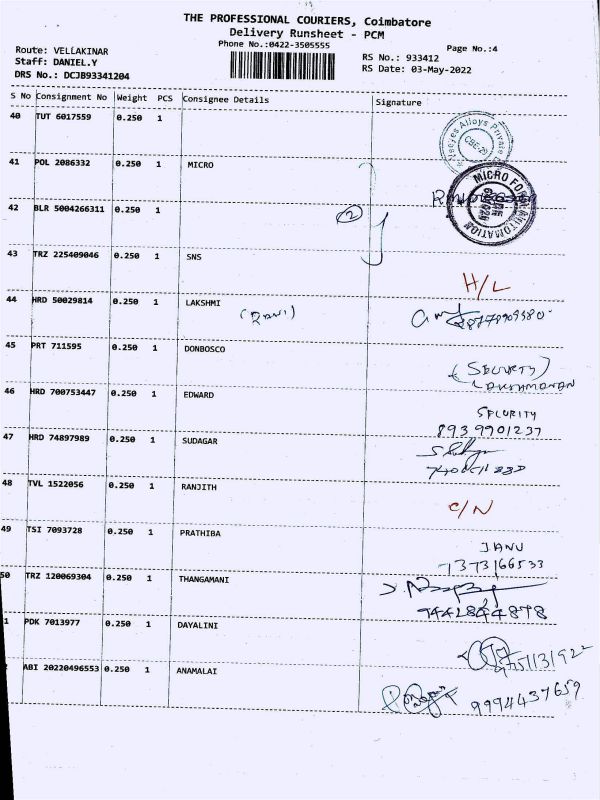 THE PROFESSIONAL COURIERS, Coimbatore
Delivery Runsheet - PCM
Phone No.:0422-3505555
Page No.:4
Route: VELLAKINAR
RS No.: 933412
Staff: DANIEL.Y
RS Date: 03-May-2022
DRS No.: DCJB93341204
S No Consignment No Weight PCS Consignee Details Signature
40 TUT 6017559 0.250 1
41 POL 2086332 0.250 1 MICRO
42 BLR 5004266311 0.250 1
2
43 TRZ 225409046 0.250 1 SNS
H/L
44 HRD 50029814 0.250 1 LAKSHMI
(RANI)
45 PRT 711595 0.250 1 DONBOSCO
(SECURITY)
46 HRD 700753447 0.250 1 EDWARD
SECURITY
8939901237
47 HRD 74897989 0.250 1 SUDAGAR
48 TVL 1522056 0.250 1 RANJITH
C/N
49 TSI 7093728 0.250 1 PRATHIBA
JANU
7373166533
50 TRZ 120069304 0.250 1 THANGAMANI
9442844878
1 PDK 7013977 0.250 1 DAYALINI
ABI 20220496553 0.250 1 ANAMALAI
9994437659